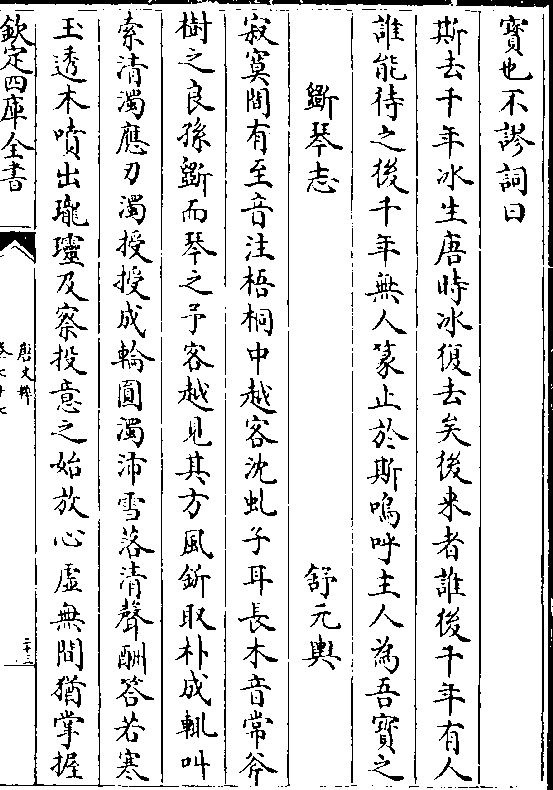 寳也不謬詞曰
斯去千年氷生唐時氷復去矣後来者誰後千年有人
誰能待之後千年無人篆止於斯嗚呼主人為吾寳之
斵琴志 舒元輿
寂寞間有至音注梧桐中越客沈虬子耳長木音常斧
樹之良孫斵而琴之予客越見其方風斫取朴成輒叫
索清濁應刀濁授授成輪圓濁沛雪落清聲酬答若寒
玉透木噴出瓏瓏及察投意之始放心虛無間猶掌握
欽定四庫全書
唐文粹
二十三